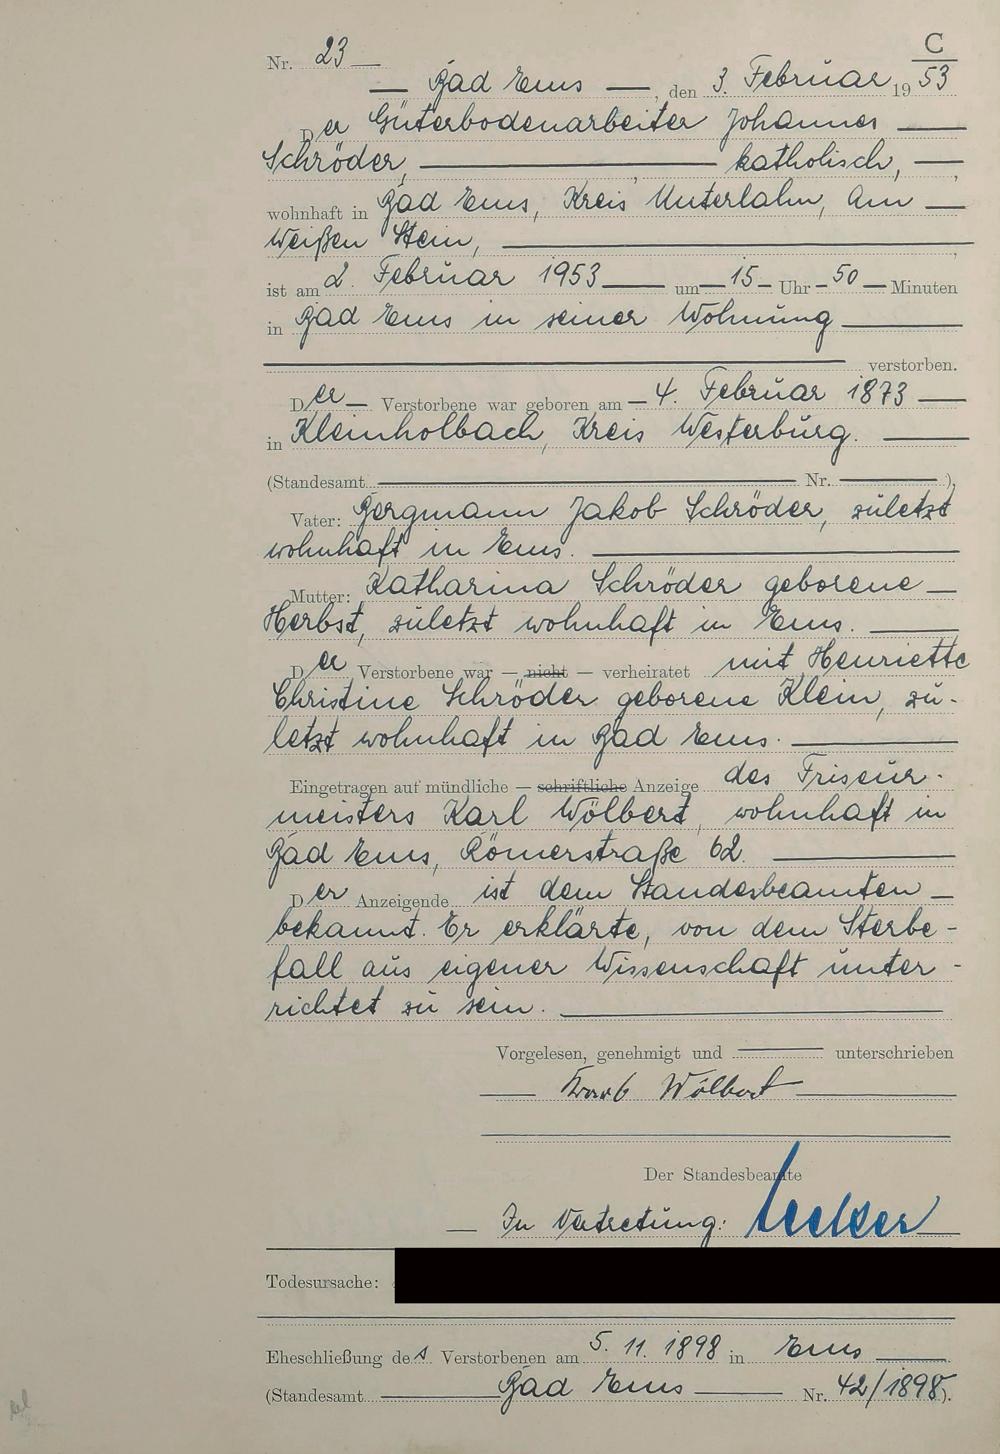 C
Nr. 23
53
Bad Ems, den 3. Februar 19
Der Güterbodenarbeiter Johannes
Schröder, katholisch,
wohnhaft in Bad Ems, Kreis Unterlahn, Am
Weißen Stein,
ist am 2. Februar 1953 um 15 Uhr 50 Minuten
in Bad Ems in seiner Wohnung
verstorben.
Der Verstorbene war geboren am 4. Februar 1873
in Kleinholbach, Kreis Westerburg.
(Standesamt Nr. ),
Vater: Bergmann Jakob Schröder, zuletzt
wohnhaft in Ems.
Mutter: Katharina Schröder geborene
Herbst, zuletzt wohnhaft in Ems.
Der Verstorbene war — nicht — verheiratet mit Henriette
Christine Schröder geborene Klein, zu-
letzt wohnhaft in Bad Ems.
Eingetragen auf mündliche — schriftliche Anzeige des Friseur-
meisters Karl Wölbert, wohnhaft in
Bad Ems, Römerstraße 62.
Der Anzeigende ist dem Standesbeamten
bekannt. Er erklärte, von dem Sterbe-
fall aus eigener Wissenschaft unter-
richtet zu sein.
Vorgelesen, genehmigt und unterschrieben
Wölbert
Der Standesbeamte
In Vertretung:
Todesursache:
Eheschließung des Verstorbenen am 5. 11. 1898 in Ems
(Standesamt Bad Ems Nr. 42/1898).